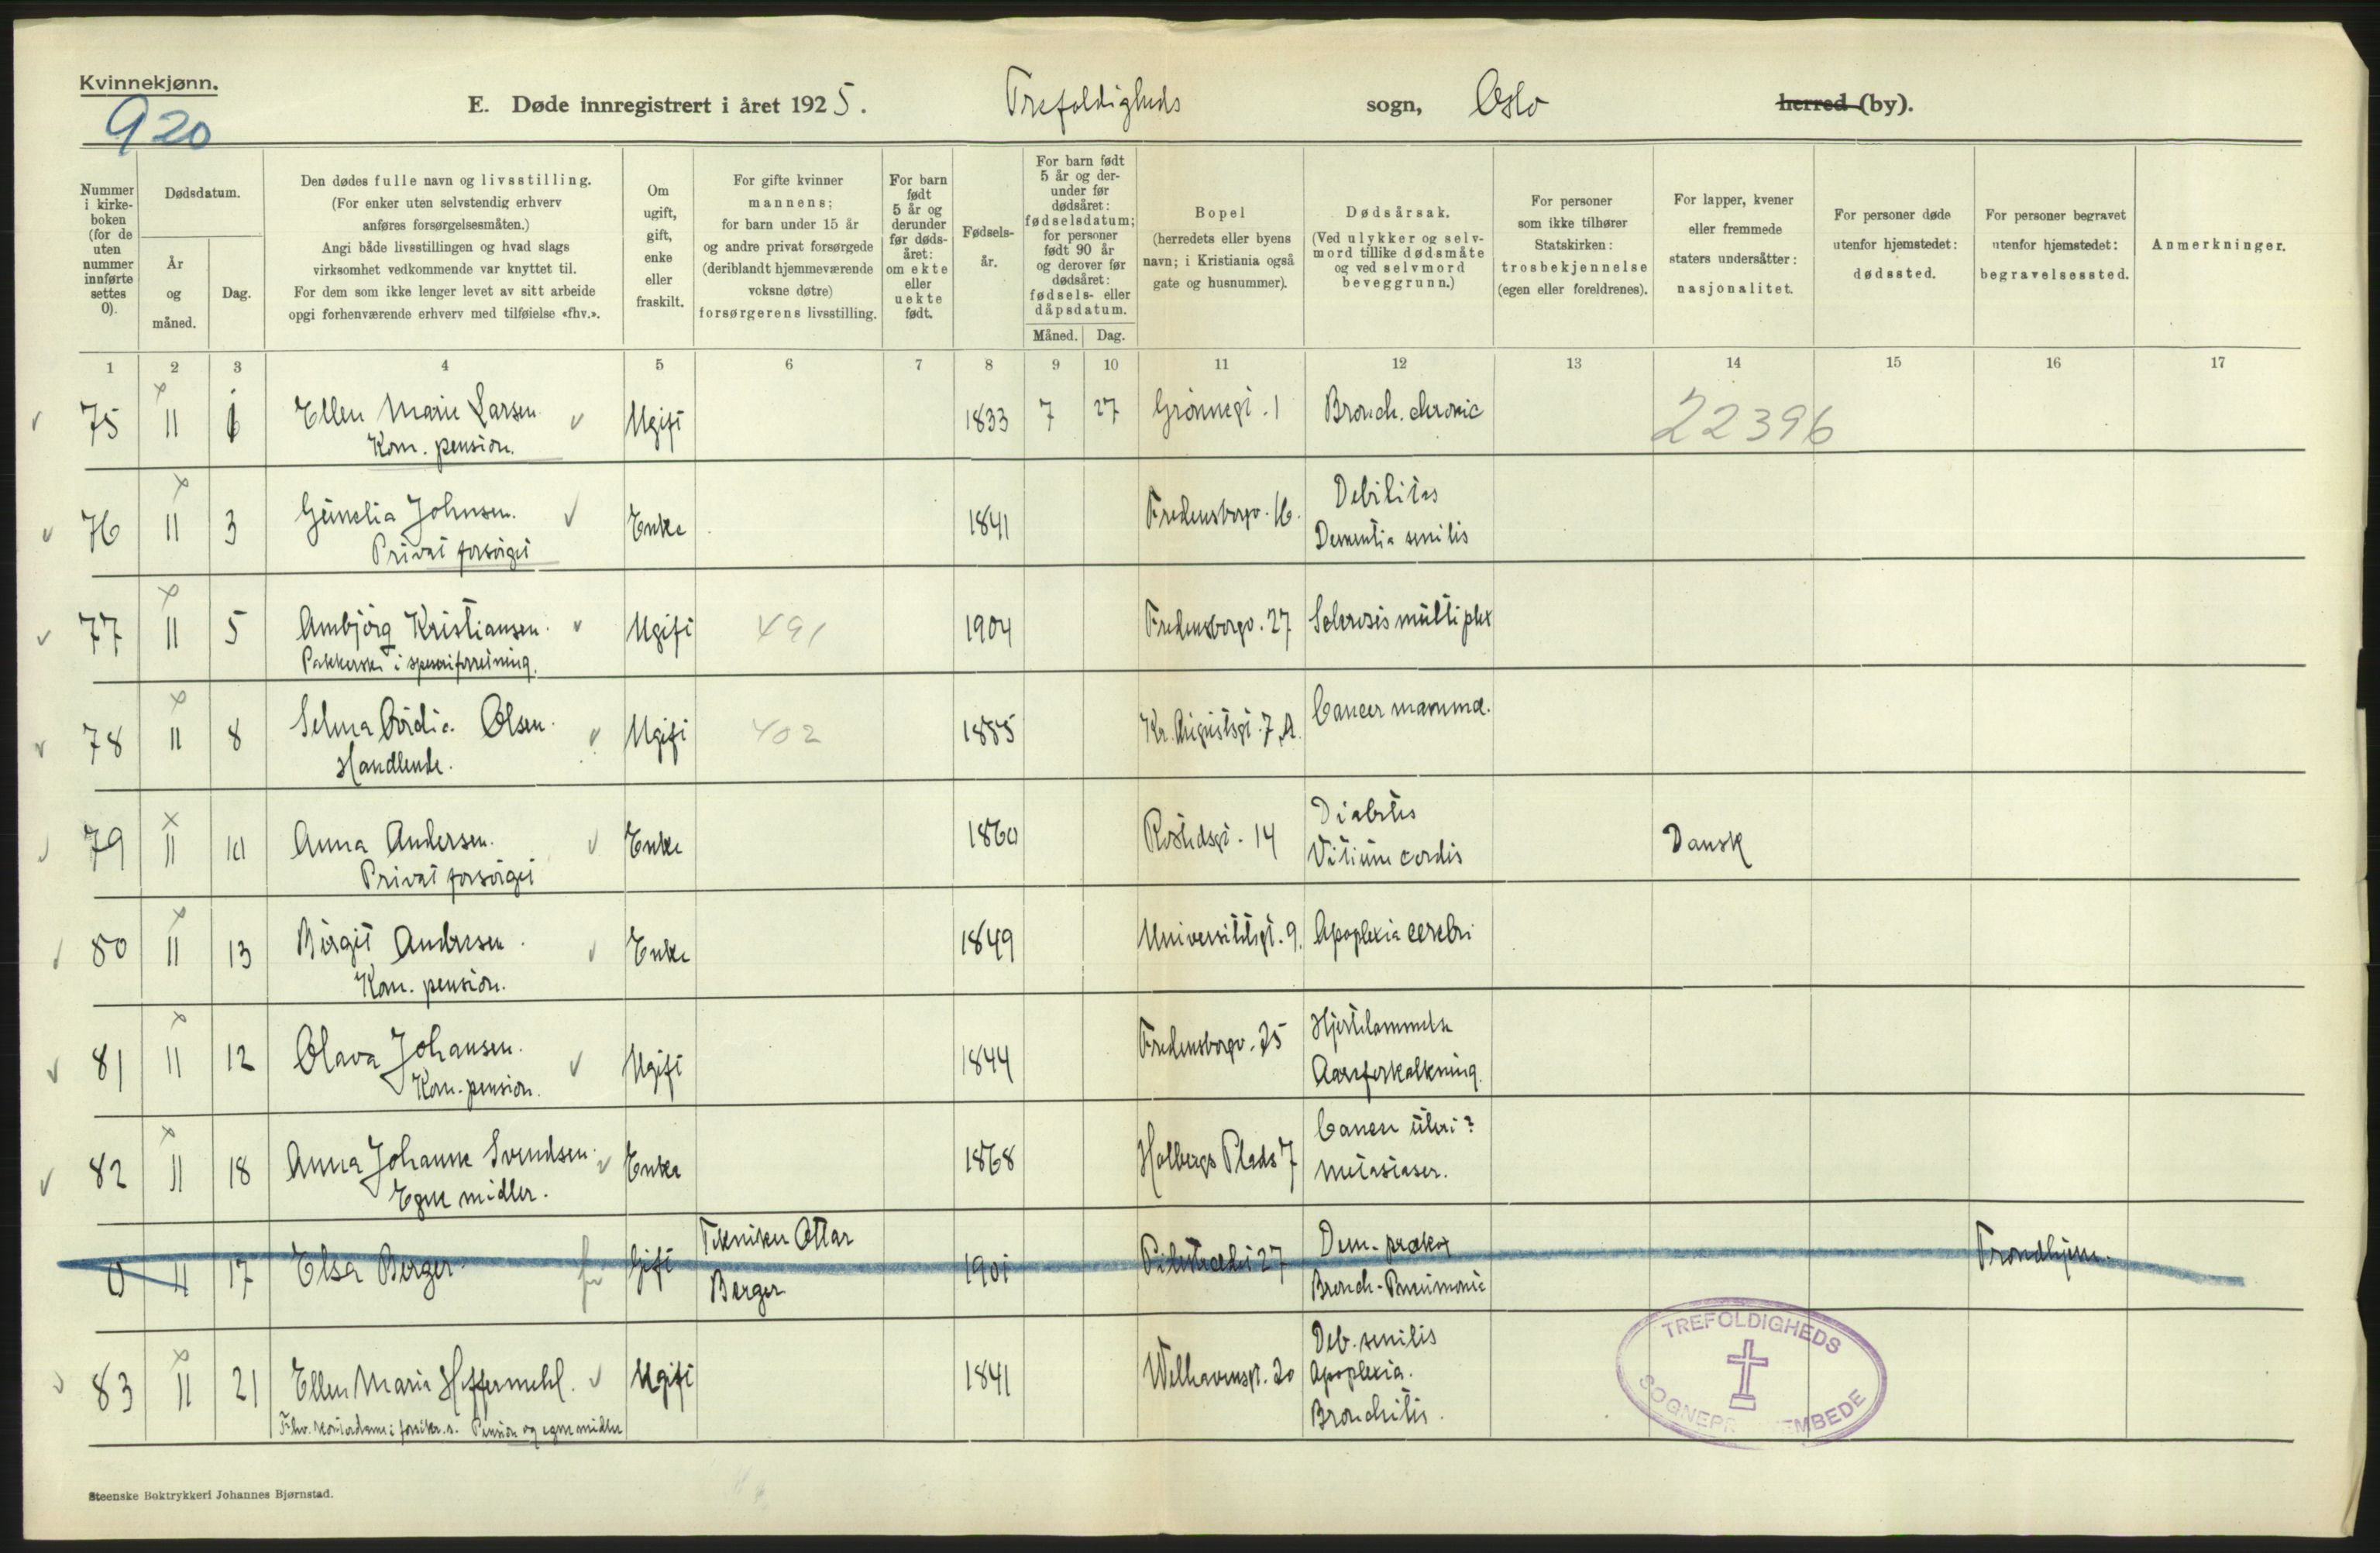 Kvinnekjønn.
920
E. Døde innregistrert i året 1925. Trefoldigheds sogn, Oslo herred (by).
Nummer i kirke-boken (for de uten nummer innførte settes 0).
Dødsdatum.
År og måned.
Dag.
Den dødes fulle navn og livsstilling.
(For enker uten selvstendig erhverv
anføres forsørgelsesmåten.)
Angi både livsstillingen og hvad slags
virksomhet vedkommende var knyttet til.
For dem som ikke lenger levet av sitt arbeide
opgi forhenværende erhverv med tilføielse «fhv.».
Om ugift, gift, enke eller fraskilt.
For gifte kvinner
mannens;
for barn under 15 år
og andre privat forsørgede
(deriblandt hjemmeværende
voksne døtre)
forsørgerens livsstilling.
For barn født 5 år og derunder før døds-året: om ekte eller uekte født.
Fødsels-år.
For barn født 5 år og der-under før dødsåret: fødselsdatum; for personer født 90 år og derover før dødsåret: fødsels- eller dåpsdatum.
Måned. Dag.
Bopel
(herredets eller byens
navn; i Kristiania også
gate og husnummer).
Dødsårsak.
(Ved ulykker og selv-
mord tillike dødsmåte
og ved selvmord
beveggrunn.)
For personer
som ikke tilhører
Statskirken:
trosbekjennelse
(egen eller foreldrenes).
For lapper, kvener
eller fremmede
staters undersåtter:
nasjonalitet.
For personer døde
utenfor hjemstedet:
dødssted.
For personer begravet
utenfor hjemstedet:
begravelsessted.
Anmerkninger.
1 2 3 4 5 6 7 8 9 10 11 12 13 14 15 16 17
75 II Ellen Marie Larsen. Ugift 1833 7 27 Grønnegt. 1 Bronch. chronic 22396
Kom. pension.
76 II 3 Johnsen. Enke 1841 Fredensborgv. 16. Debilitas
Privat forsørget Dementia senilis
77 II 5 Ambjörg Kristiansen. Ugift 491 1904 Fredensborgv. 27 Sclerosis multiplex
Pakkerske i
78 II 8 Selma Olsen. Ugift 402 1885 Kr. Augustsgt. 7 A. Cancer mammæ.
Handlende.
79 II 10 Anna Andersen. Enke 1860 14 Diabetes
Privat forsørget Vitium cordis Dansk
80 II 13 Birgit Andresen. Enke 1849 Universitetsgt. 9. Apoplexia cerebri
Kom. pension.
81 II 12 Olava Johansen. Ugift 1844 Fredensborgv. 25 Hjertelammelse
Kom. pension. Aareforkalkning.
82 II 18 Anna Johanne Svendsen. Enke 1868 Holbergs Plads 7 Cancer uteri?
Egne midler. metastaser.
0 II 17 Elsa Berger Gift Tekniker Ottar 1901 Pilestrædet 27 Dem. præcox Trondhjem.
Berger Bronch-Pneumonie
83 II 21 Ellen Marie Heffermehl. Ugift 1841 Welhavensgt. 20 Deb. senilis
Apoplexia.
Fhv. kontordame i Pension og egne midler Bronchitis.
TREFOLDIGHEDS
Steenske Boktrykkeri Johannes Bjørnstad.